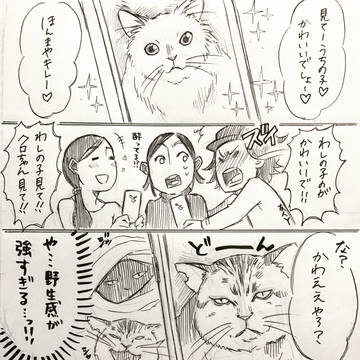 見てーうちの子
かわいいでしょー♡
ほんまや
キレー♡
ズイ
わしの子のが
かわいいで!!
酔ってる!?
わしの子見て!!
クロちゃん見て!!
な?
かわええやろ?
どーん
や…野生感が
強すぎる…っ!!